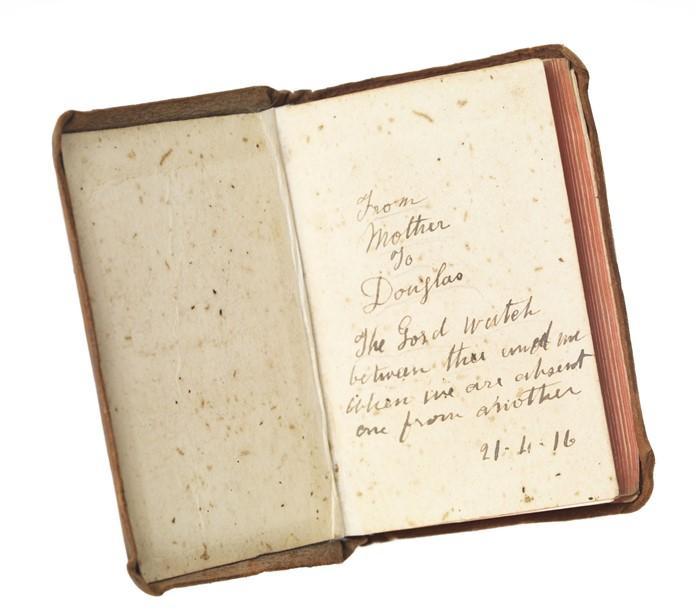 From
Mother
To
Douglas
The Lord watch
between thee and me
when we are absent
one from another
21·4·16